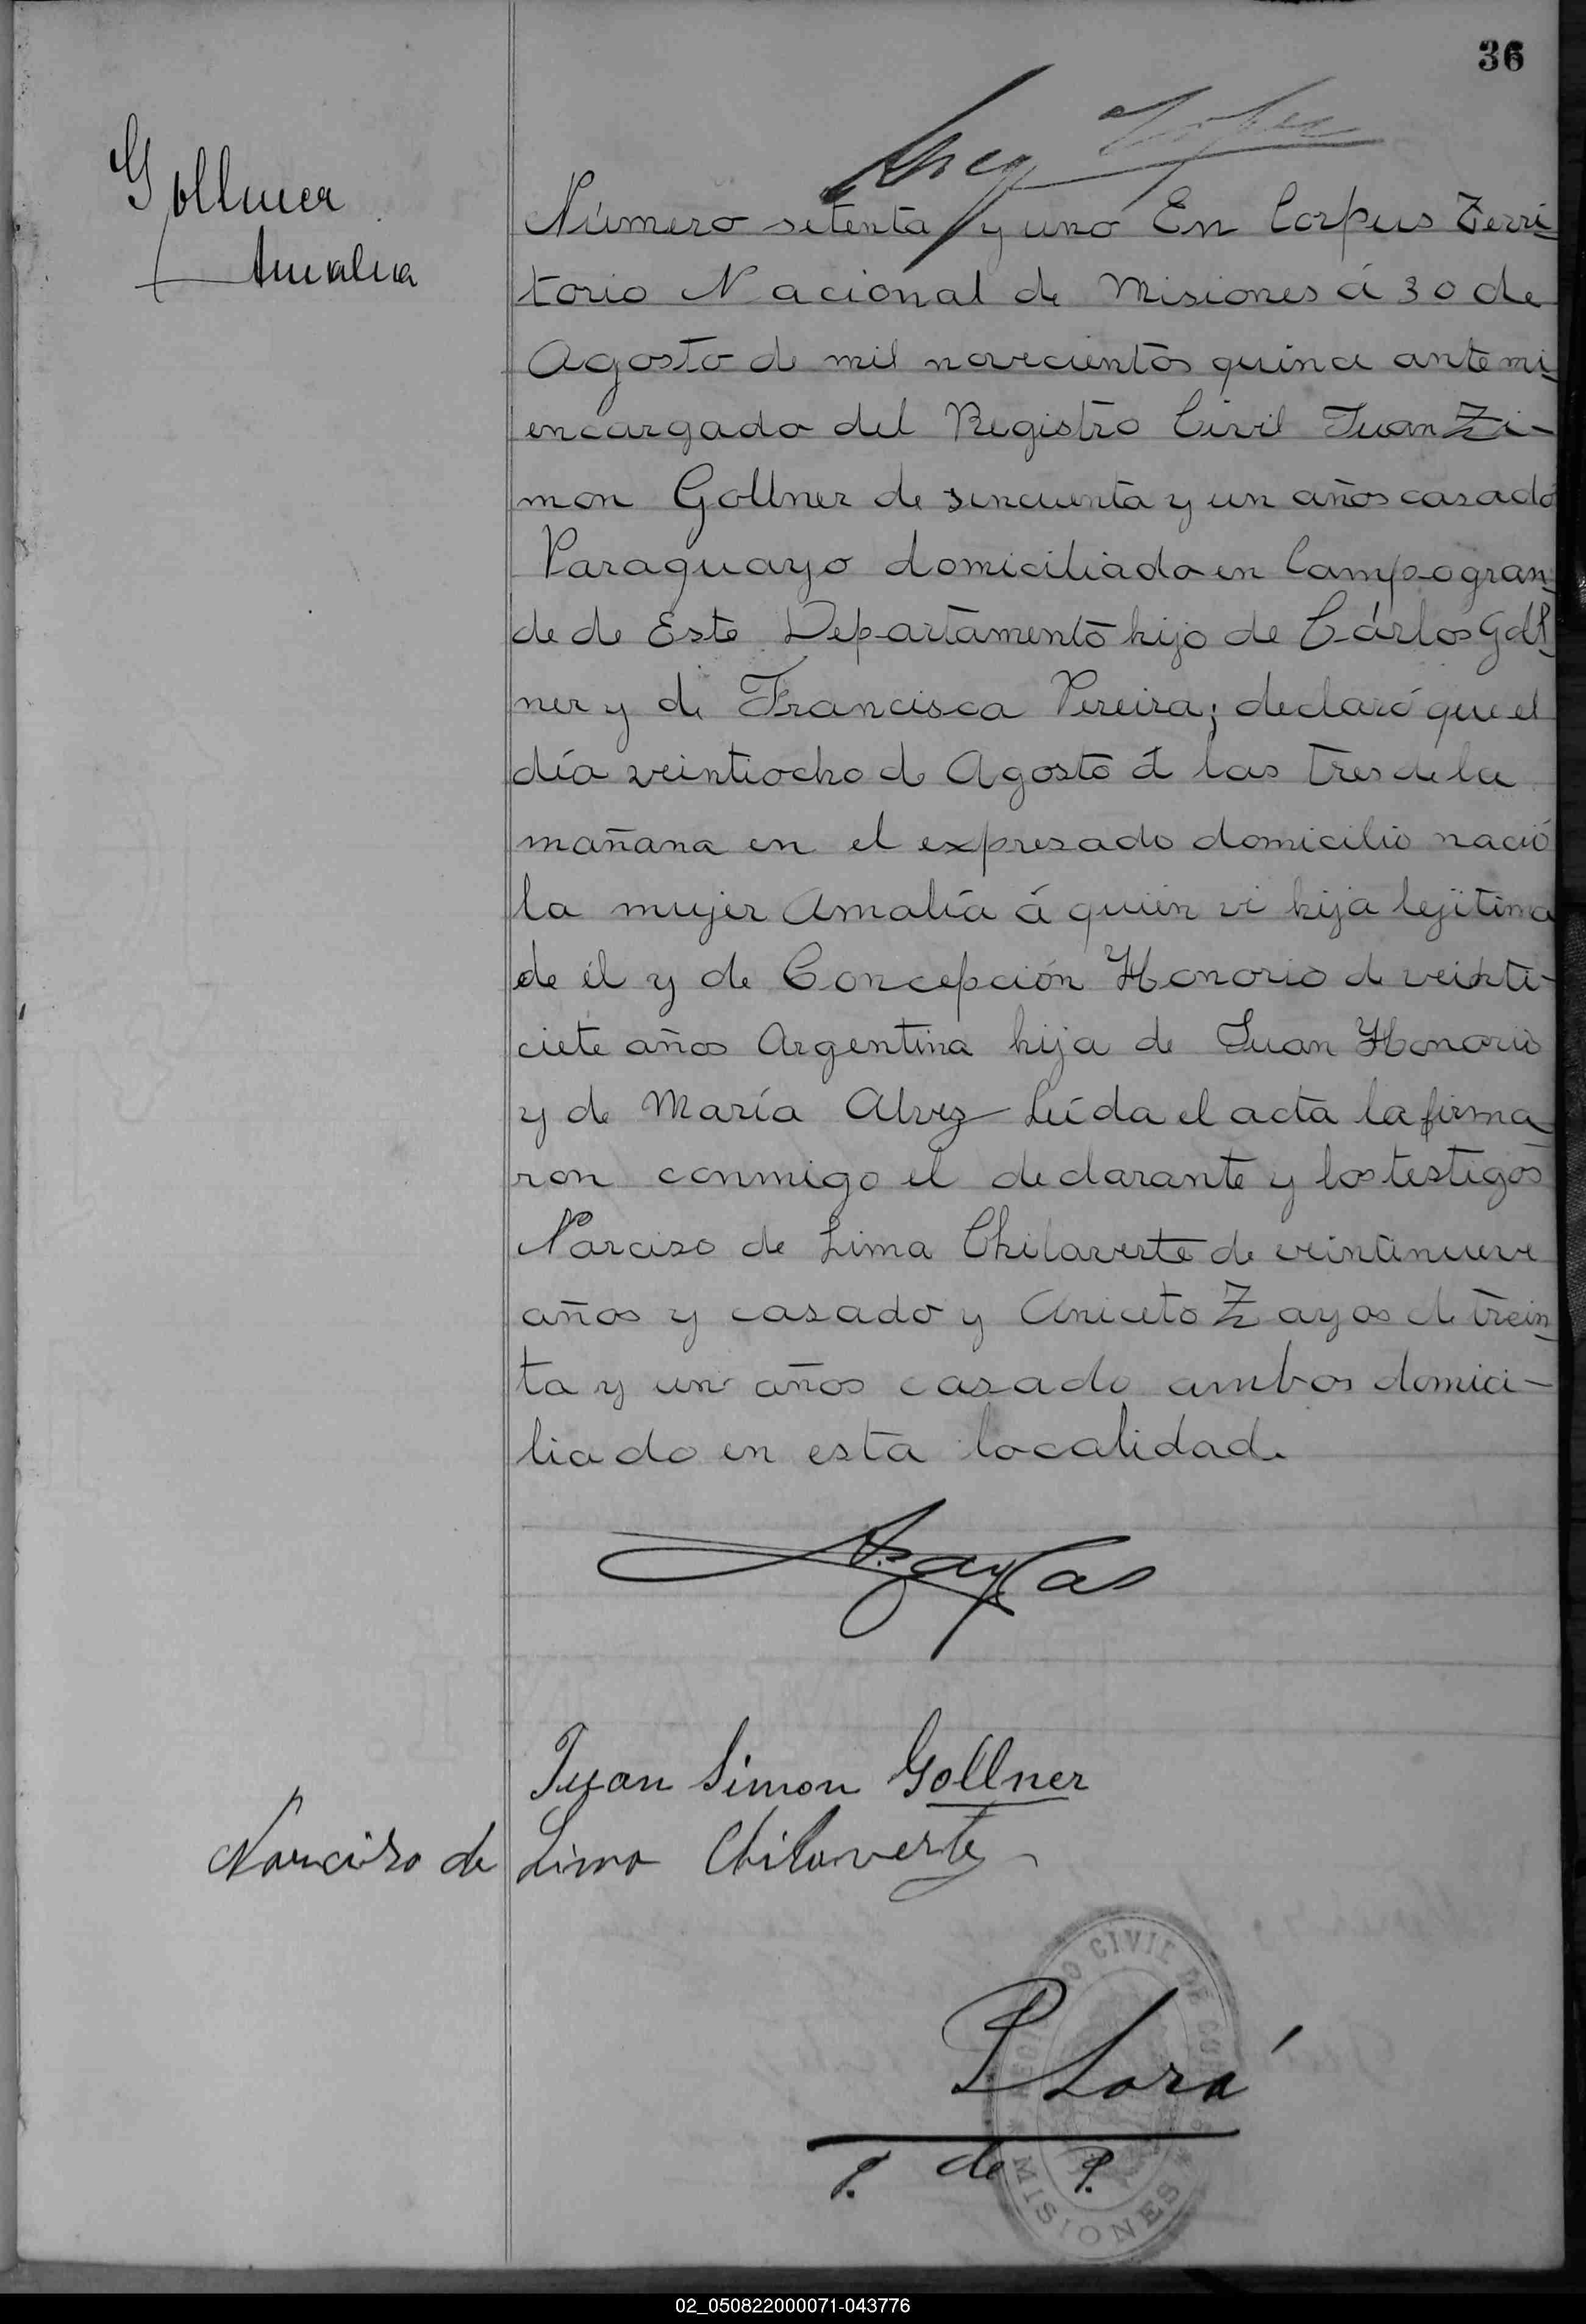 36
Gollner
Amalia
Número setenta y uno En Corpus Terri=
torio Nacional de Misiones á 30 de
Agosto de mil novecientos quince ante mi
encargado del Registro Civil Juan Zi-
mon Gollner de sincuenta y un años casado
Paraguayo domiciliado en Campo gran=
de de Este Departamento hijo de Cárlos Goll
ner y de Francisca Pereira; declaró que el
día veintiocho de Agosto á las tres de la
mañana en el expresado domicilio nació
la mujer Amalia á quien vi hija lejitima
de él y de Concepción Honorio de veinti-
ciete años Argentina hija de Juan Honorio
y de María Alvez Leída el acta la firma
ron conmigo el declarante y los testigos
Narciso de Lima Chilaverte de veintinueve
años y casado y Aniceto Zayas de trein
ta y un años casado ambos domici-
liado en esta localidad.
AZayas
Juan Simon Gollner
Narciso de Lima Chilaverte
P Lorá
J. de P.
CIVIL DE COR
MISIONES
02_050822000071-043776